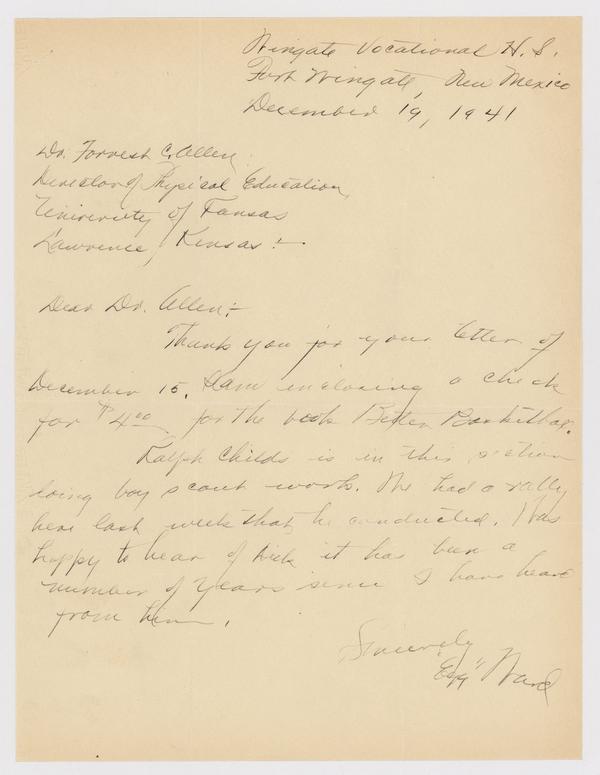 Wingate Vocational H. S.
Fort Wingate, New Mexico
December 19, 1941
Dr. Forrest C. Allen
Director of Physical Education,
University of Kansas
Lawrence, Kansas :-
Dear Dr. Allen :-
Thank you for your letter of
December 15. I am inclosing a check
for $4.00 for the book Better Basketball.
Ralph Childs is in this section
doing boy scout work. We had a rally
here last week that he conducted. Was
happy to hear of Dick it has been a
number of years since I have heard
from him.
Sincerely
"Egg" Ward